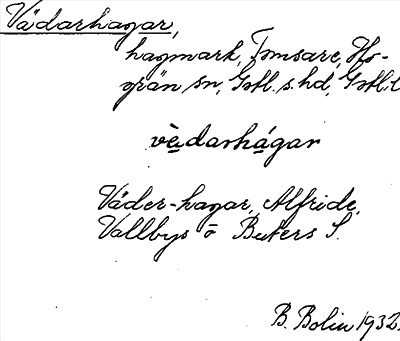 Vädarhagar,
hagmark, Tomsare, Ho-
grän sn, Gotl. s. hd, Gotl. l
vèdarhágar
Väder-hagar, Alfride,
Vallbys ö Buters S.
B. Bolin 1932.